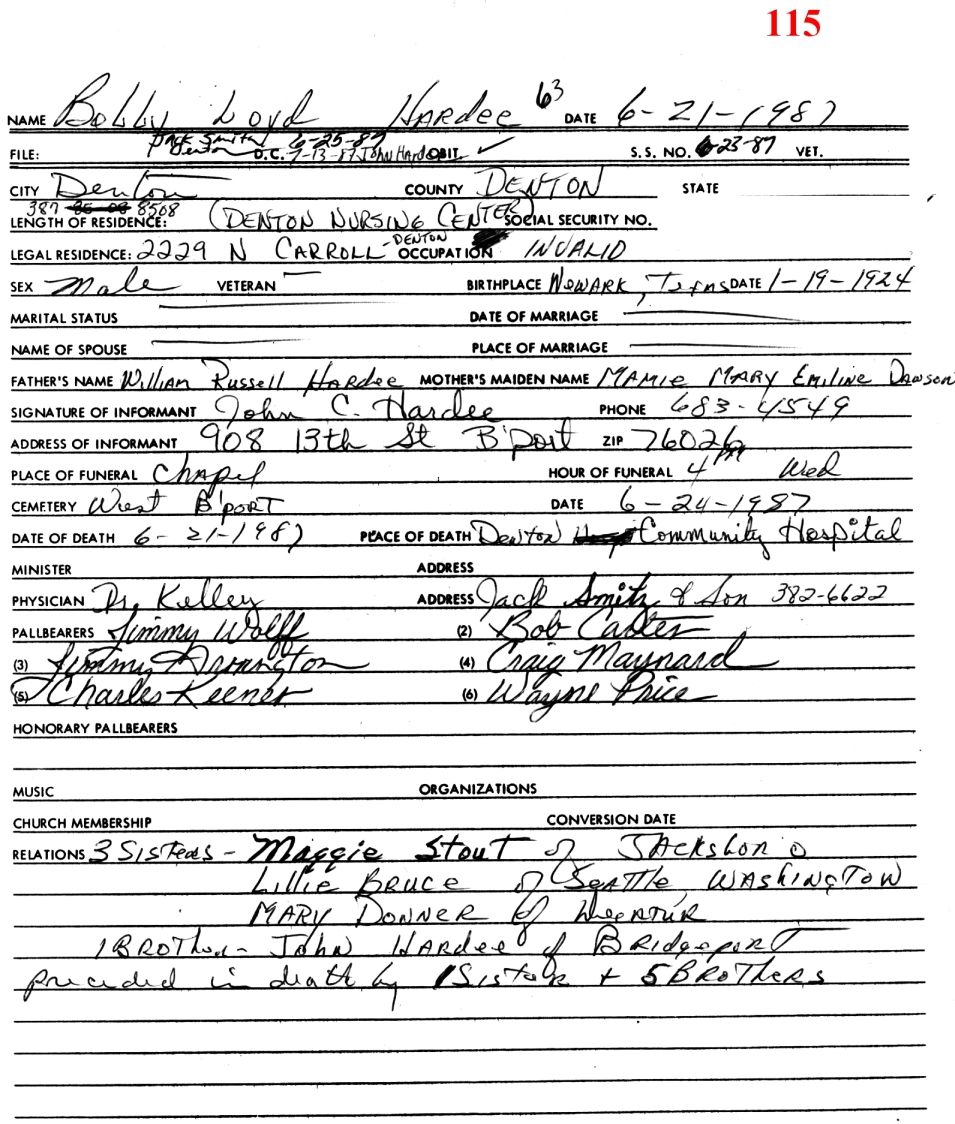 115
NAME Bobby Loyd Hardee 63 DATE 6-21-1987
Jack Smith 6-25-87
FILE: Denton D.C. 7-13-87 John Hard OBIT. ✓ S.S. NO. 6-23-87 VET.
CITY Denton COUNTY DENTON STATE
387 8508
LENGTH OF RESIDENCE: (DENTON NURSING CENTER) SOCIAL SECURITY NO.
LEGAL RESIDENCE: 2229 N CARROLL - DENTON OCCUPATION INVALID
SEX Male VETERAN — BIRTHPLACE NEWARK, Texas DATE 1-19-1924
MARITAL STATUS DATE OF MARRIAGE
NAME OF SPOUSE PLACE OF MARRIAGE
FATHER'S NAME William Russell Hardee MOTHER'S MAIDEN NAME MAMIE MARY Emiline Dawson
SIGNATURE OF INFORMANT John C. Hardee PHONE 683-4549
ADDRESS OF INFORMANT 908 13th St B'port ZIP 76026
PLACE OF FUNERAL Chapel HOUR OF FUNERAL 4 PM Wed
CEMETERY West B'PORT DATE 6-24-1987
DATE OF DEATH 6-21-1987 PLACE OF DEATH Denton Community Hospital
MINISTER ADDRESS
PHYSICIAN Dr. Kelley ADDRESS Jack Smith & Son 382-6622
PALLBEARERS Jimmy Wolff (2) Bob Carter
(3) Jimmy (4) Craig Maynard
(5) Charles Keener (6) Wayne Price
HONORARY PALLBEARERS
MUSIC ORGANIZATIONS
CHURCH MEMBERSHIP CONVERSION DATE
RELATIONS 3 Sisters - Maggie Stout of
Lillie BRUCE of SEATTLE WASHINGTON
MARY DONNER of Decatur
1 BROTher - JOHN HARDEE of BRIDgeport
preceded in death by 1 Sister + 5 BROTHERS